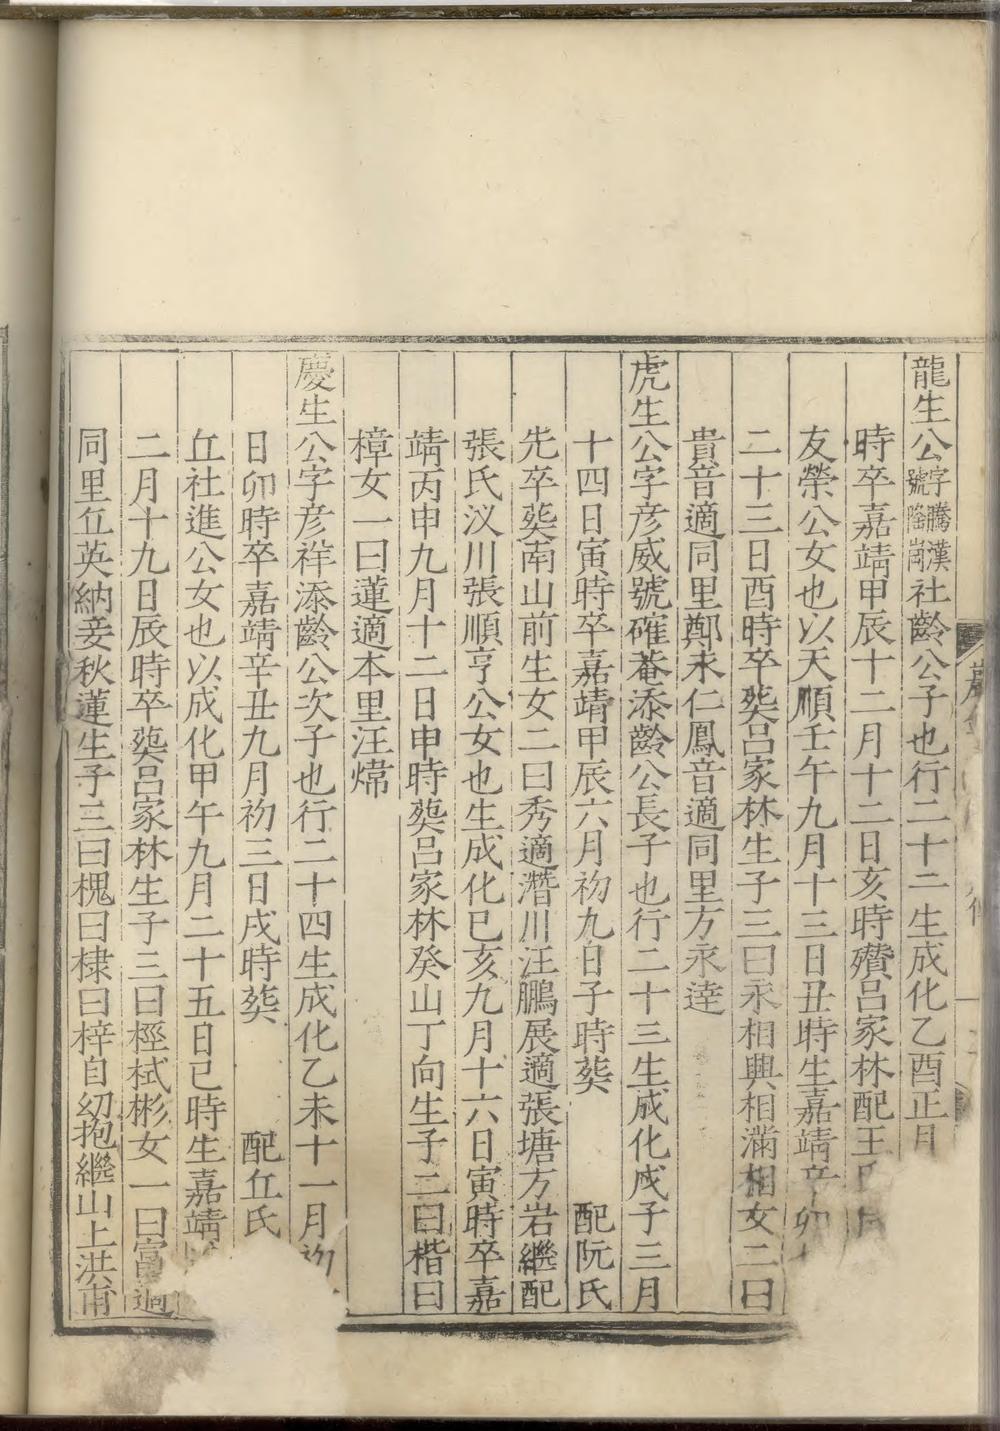 龍生公字騰漢號隆崗社齡公子也行二十二生成化乙酉正月
時卒嘉靖甲辰十二月十二日亥時殯呂家林配王氏
友榮公女也以天順壬午九月十三日丑時生嘉靖辛卯
二十三日酉時卒葵呂家林生子三曰永相興相滿相女二曰
貴音適同里鄭永仁鳳音適同里方永達
虎生公字彥威號確菴添齡公長子也行二十三生成化戌子三月
十四日寅時卒嘉靖甲辰六月初九日子時葵 配阮氏
先卒葵南山前生女二曰秀適潛川汪鵬展適張塘方岩繼配
張氏汊川張順亨公女也生成化巳亥九月十六日寅時卒嘉
靖丙申九月十二日申時葵呂家林癸山丁向生子二曰楷曰
樟女一曰蓮適本里汪煒
慶生公字彥祥添齡公次子也行二十四生成化乙未十一月初
日卯時卒嘉靖辛丑九月初三日戌時葵 配丘氏
丘社進公女也以成化甲午九月二十五日巳時生嘉靖
二月十九日辰時卒葵呂家林生子三曰樫栻彬女一曰富適
同里丘英納妾秋蓮生子三曰槐曰棣曰梓自幼抱繼山上洪甫